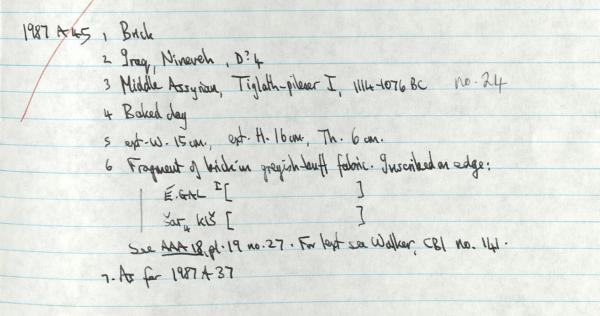 1987 A 45 1 Brick
2 Iraq, Nineveh, D?4
3 Middle Assyrian, Tiglath-pileser I, 1114-1076 BC no. 24
4 Baked clay
5 ext. W. 15 cm., ext. H. 16 cm, Th. 6 cm.
6 Fragment of brick in greyish-buff fabric. Inscribed on edge:
É.GAL I[ ]
šar₄ KIŠ [ ]
See AAA 18, pl. 19 no. 27. For text see Walker, CBI no. 141.
7. As for 1987 A 37